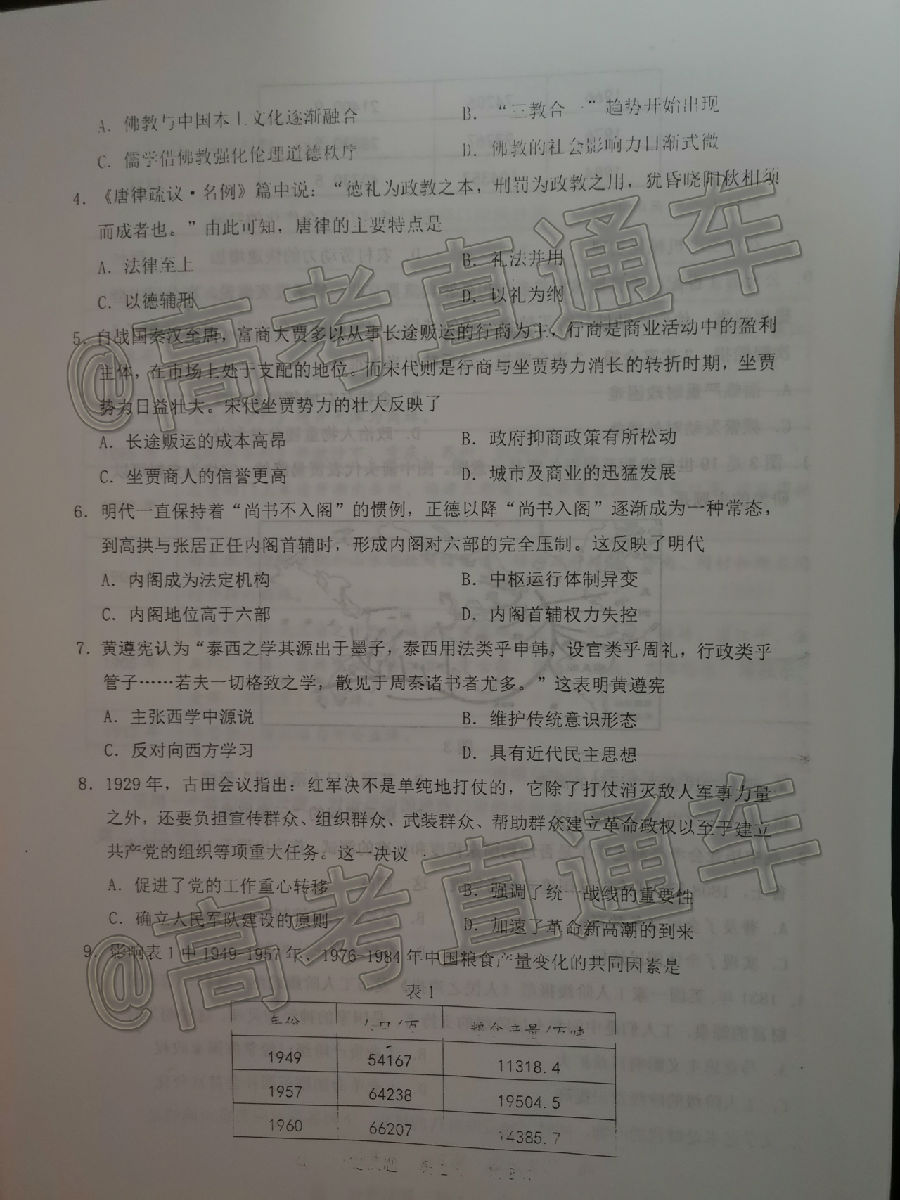 A. 佛教与中国本土文化逐渐融合 B. “三教合一”趋势开始出现
C. 儒学借佛教强化伦理道德秩序 D. 佛教的社会影响力日渐式微
4. 《唐律疏议·名例》篇中说：“德礼为政教之本，刑罚为政教之用，犹昏晓阳秋相须
而成者也。”由此可知，唐律的主要特点是
A. 法律至上 B. 礼法并用
C. 以德辅刑 D. 以礼为纲
5. 自战国秦汉至唐，富商大贾多以从事长途贩运的行商为主，行商是商业活动中的盈利
主体，在市场上处于支配的地位。而宋代则是行商与坐贾势力消长的转折时期，坐贾
势力日益壮大。宋代坐贾势力的壮大反映了
A. 长途贩运的成本高昂 B. 政府抑商政策有所松动
C. 坐贾商人的信誉更高 D. 城市及商业的迅猛发展
6. 明代一直保持着“尚书不入阁”的惯例，正德以降“尚书入阁”逐渐成为一种常态，
到高拱与张居正任内阁首辅时，形成内阁对六部的完全压制。这反映了明代
A. 内阁成为法定机构 B. 中枢运行体制异变
C. 内阁地位高于六部 D. 内阁首辅权力失控
7. 黄遵宪认为“泰西之学其源出于墨子，泰西用法类乎申韩，设官类乎周礼，行政类乎
管子……若夫一切格致之学，散见于周秦诸书者尤多。”这表明黄遵宪
A. 主张西学中源说 B. 维护传统意识形态
C. 反对向西方学习 D. 具有近代民主思想
8. 1929年，古田会议指出：红军决不是单纯地打仗的，它除了打仗消灭敌人军事力量
之外，还要负担宣传群众、组织群众、武装群众、帮助群众建立革命政权以至于建立
共产党的组织等项重大任务。这一决议
A. 促进了党的工作重心转移 B. 强调了统一战线的重要性
C. 确立人民军队建设的原则 D. 加速了革命新高潮的到来
9. 影响表1中1949-1957年、1976-1984年中国粮食产量变化的共同因素是
表1
年份 人口/万 粮食产量/万吨
1949 54167 11318.4
1957 64238 19504.5
1960 66207 14385.7
@高考直通车
@高考直通车